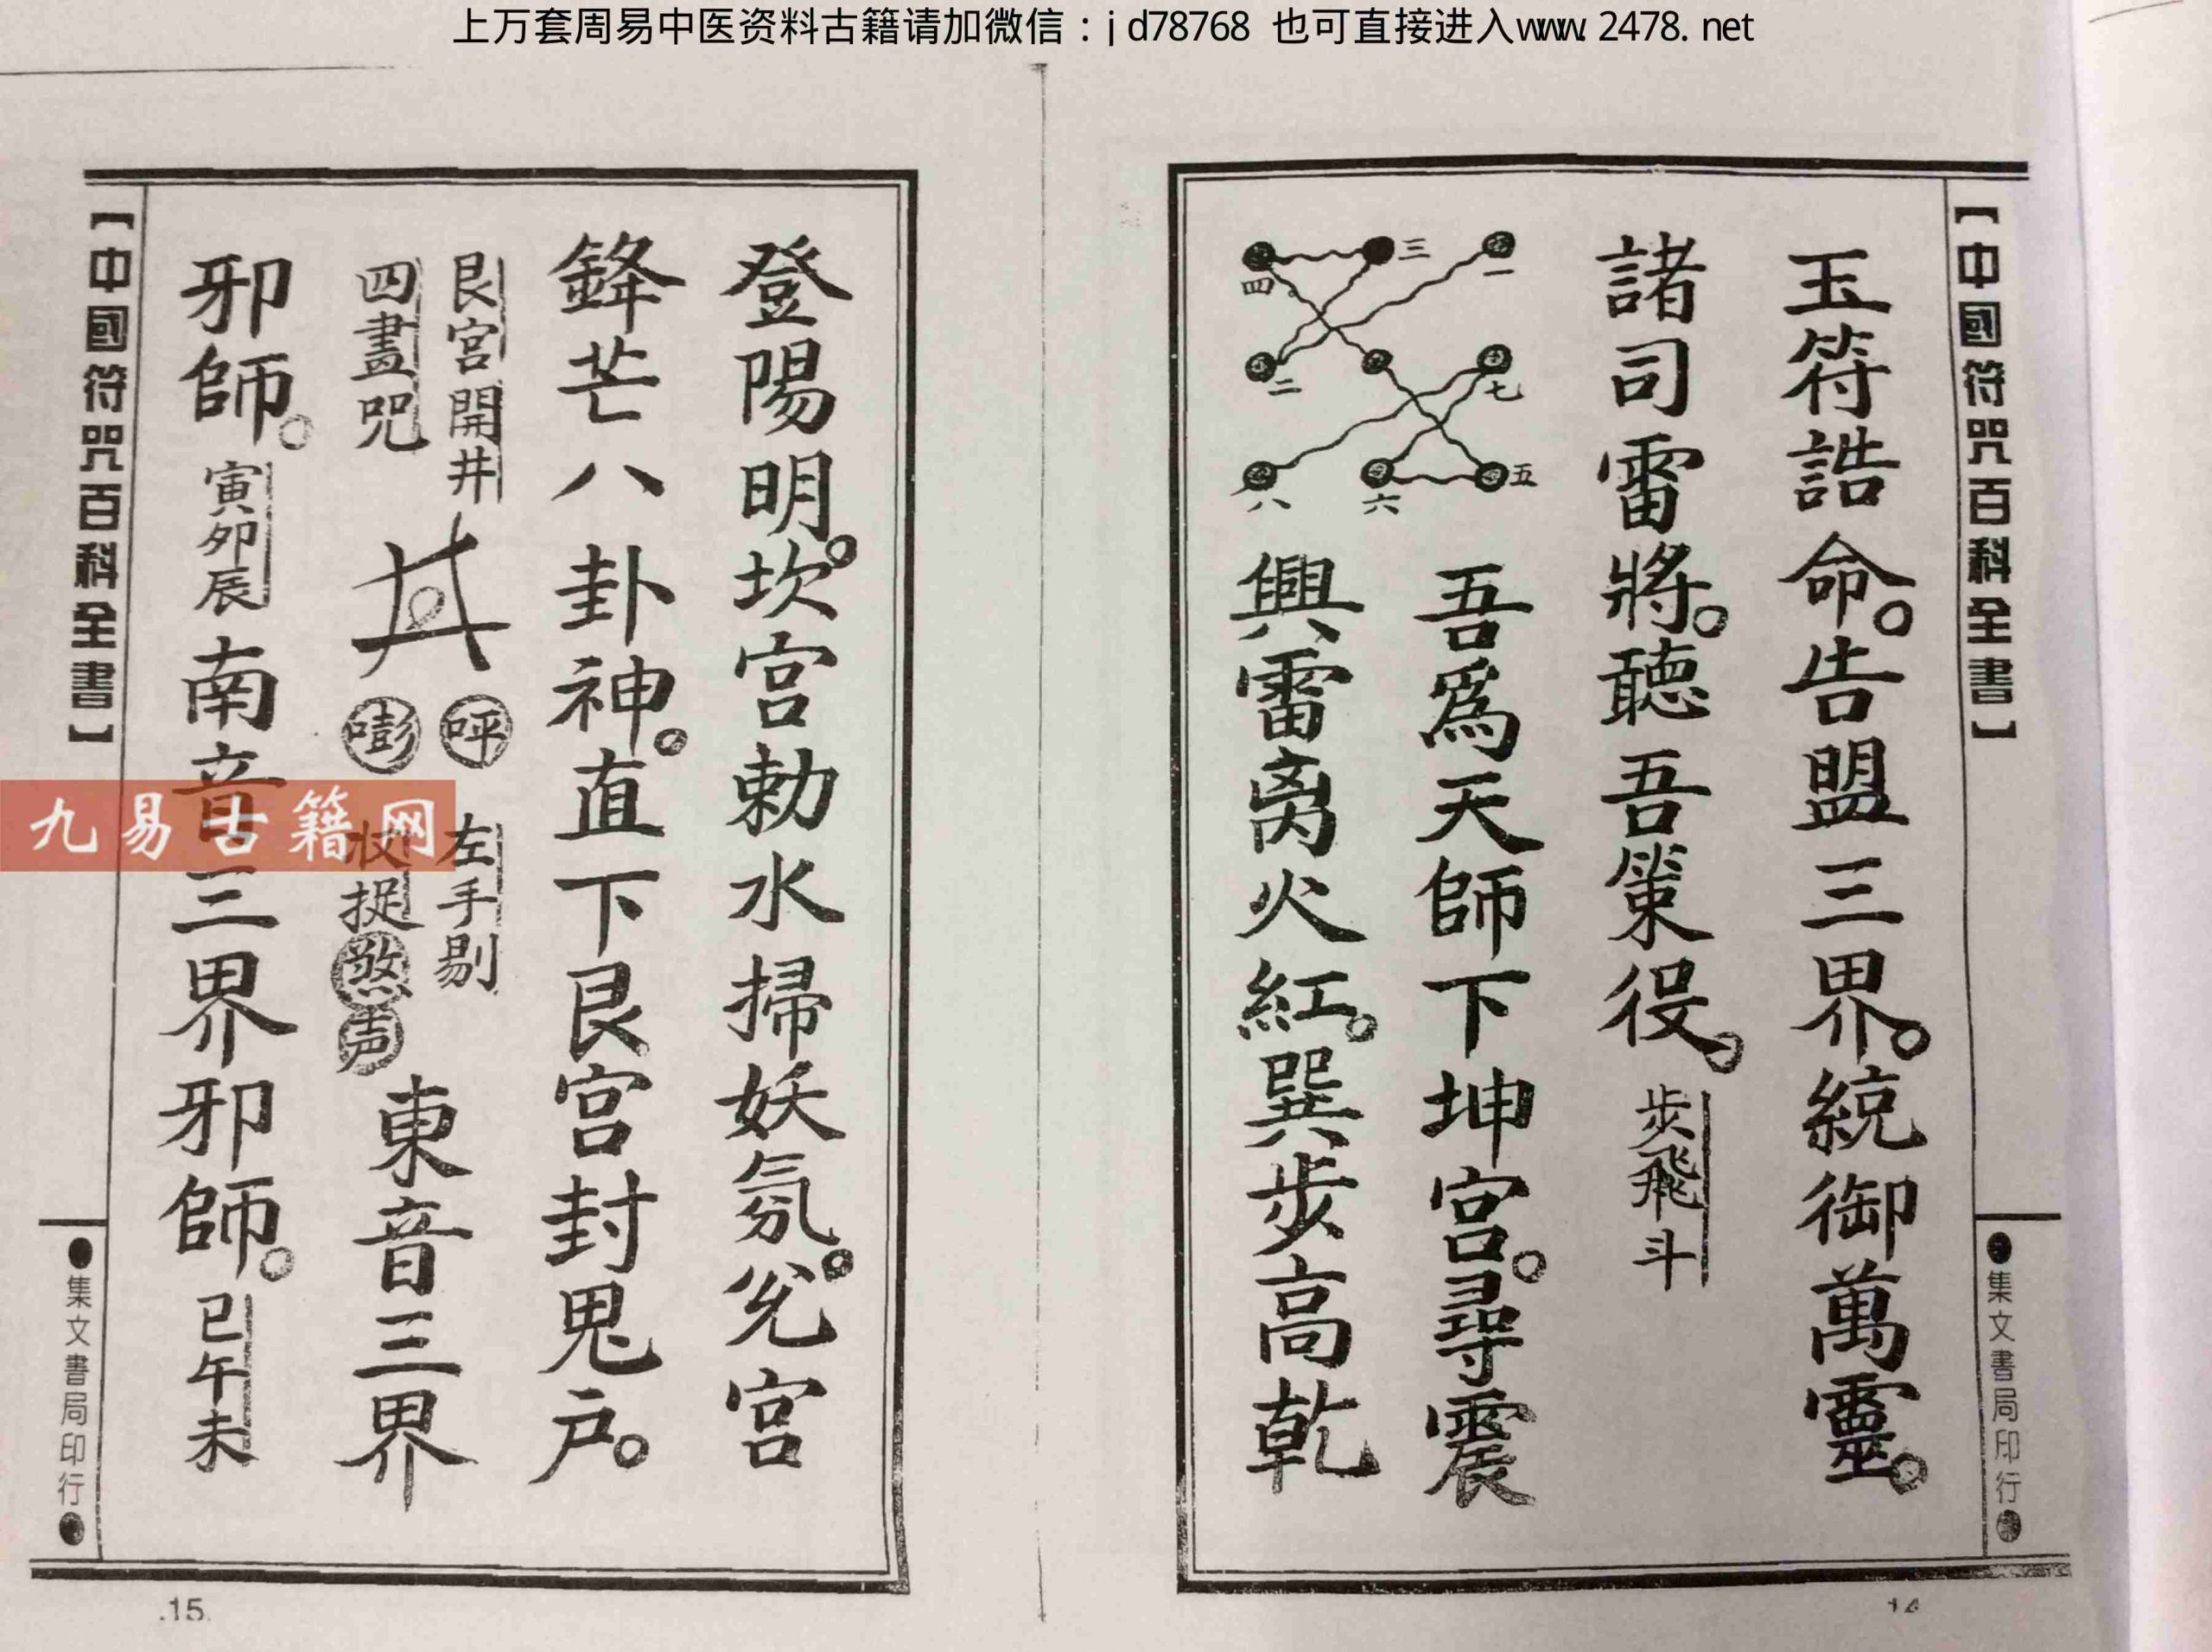 上万套周易中医资料古籍请加微信：jd78768 也可直接进入www.2478.net
【中國符咒百科全書】
●集文書局印行●
玉符誥命。告盟三界。統御萬靈。
諸司雷將。聽吾策役。步飛斗
一
二
三
四
五
六
七
八
吾爲天師下坤宮。尋震
興雷离火紅。巽步高乾
14
登陽明。坎宮勅水掃妖氛。兊宮
鋒芒八卦神。直下艮宮封鬼户。
艮宮開井
四畫咒
呯
嘭
左手剔
收捉煞声
東音三界
邪師。寅卯辰南音三界邪師。巳午未
【中國符咒百科全書】
●集文書局印行●
.15.
九易古籍网